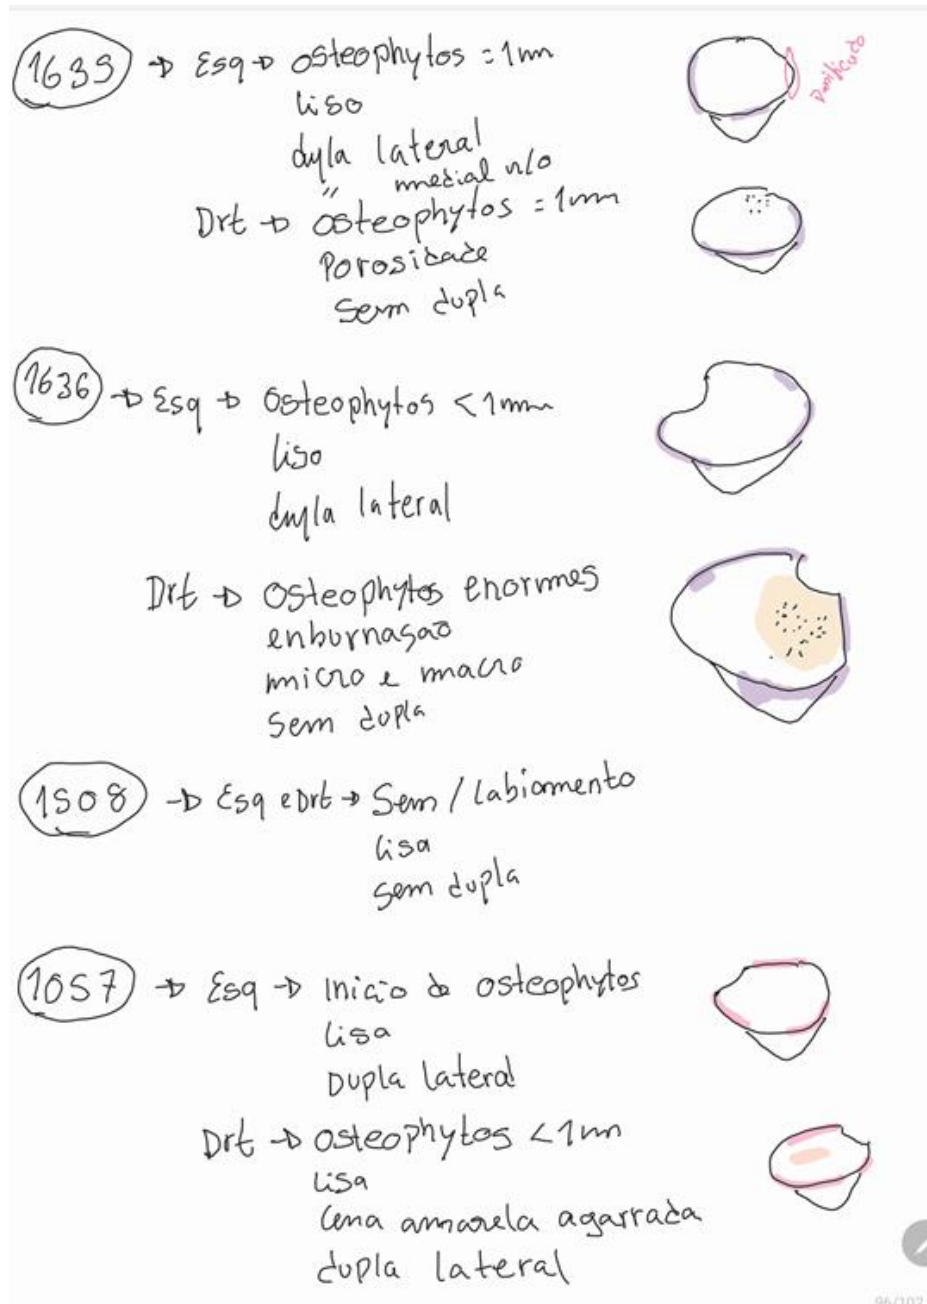 1639 → Esq → osteophytos = 1mm
liso
dupla lateral
" medial n/o
Danificado
Drt → osteophytos = 1mm
Porosidade
Sem dupla
1636 → Esq → Osteophytos < 1mm
liso
dupla lateral
Drt → Osteophytos enormes
enburnasão
micro e macro
Sem dupla
1508 → Esq e Drt → Sem / labiamento
lisa
sem dupla
1057 → Esq → Inicio de osteophytos
Lisa
Dupla lateral
Drt → osteophytos < 1mm
Lisa
Cena amarela agarrada
dupla lateral
96/102